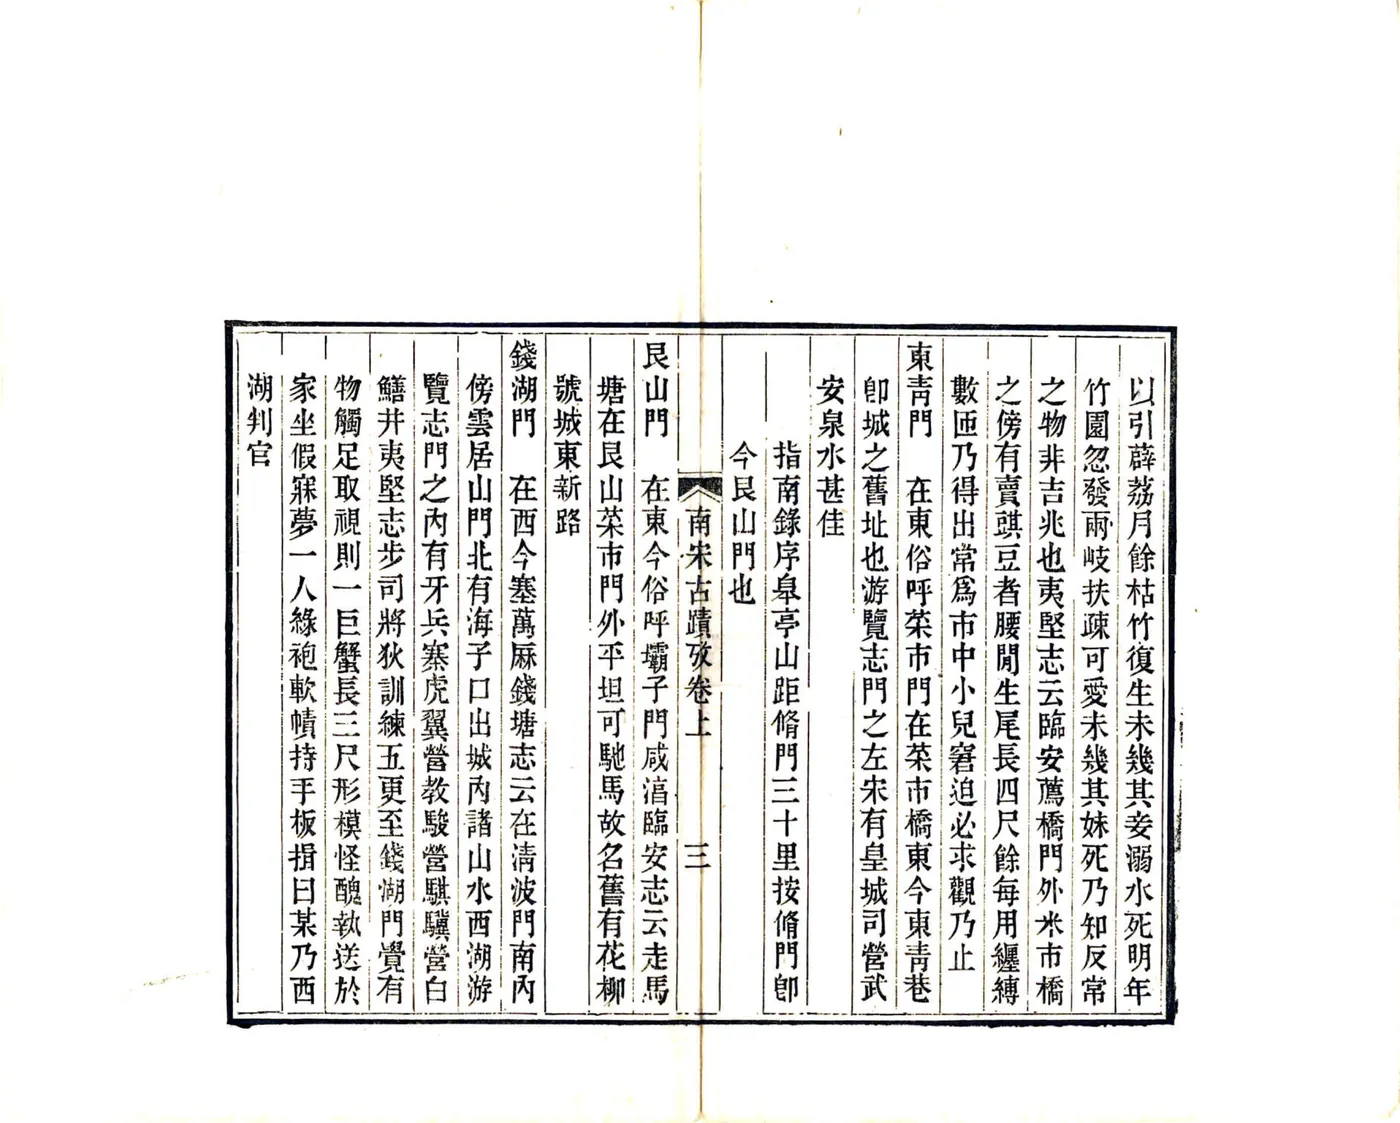 以引薜荔月餘枯竹復生未幾其妾溺水死明年
竹園忽發兩岐扶疎可愛未幾其妹死乃知反常
之物非吉兆也夷堅志云臨安薦橋門外米市橋
之傍有賣豉豆者腰閒生尾長四尺餘每用纒縛
數匝乃得出常爲市中小兒窘迫必求觀乃止
東青門　在東俗呼菜市門在菜市橋東今東青巷
卽城之舊址也游覽志門之左宋有皇城司營武
安泉水甚佳
指南錄序皋亭山距脩門三十里按脩門卽
今艮山門也
南宋古蹟攷卷上　三
艮山門　在東今俗呼壩子門咸淳臨安志云走馬
塘在艮山菜市門外平坦可馳馬故名舊有花柳
號城東新路
錢湖門　在西今塞萬厤錢塘志云在清波門南內
傍雲居山門北有海子口出城內諸山水西湖游
覽志門之內有牙兵寨虎翼營教駿營騏驥營白
鱔井夷堅志步司將狄訓練五更至錢湖門覺有
物觸足取視則一巨蟹長三尺形模怪醜執送於
家坐假寐夢一人綠袍軟幘持手板揖曰某乃西
湖判官